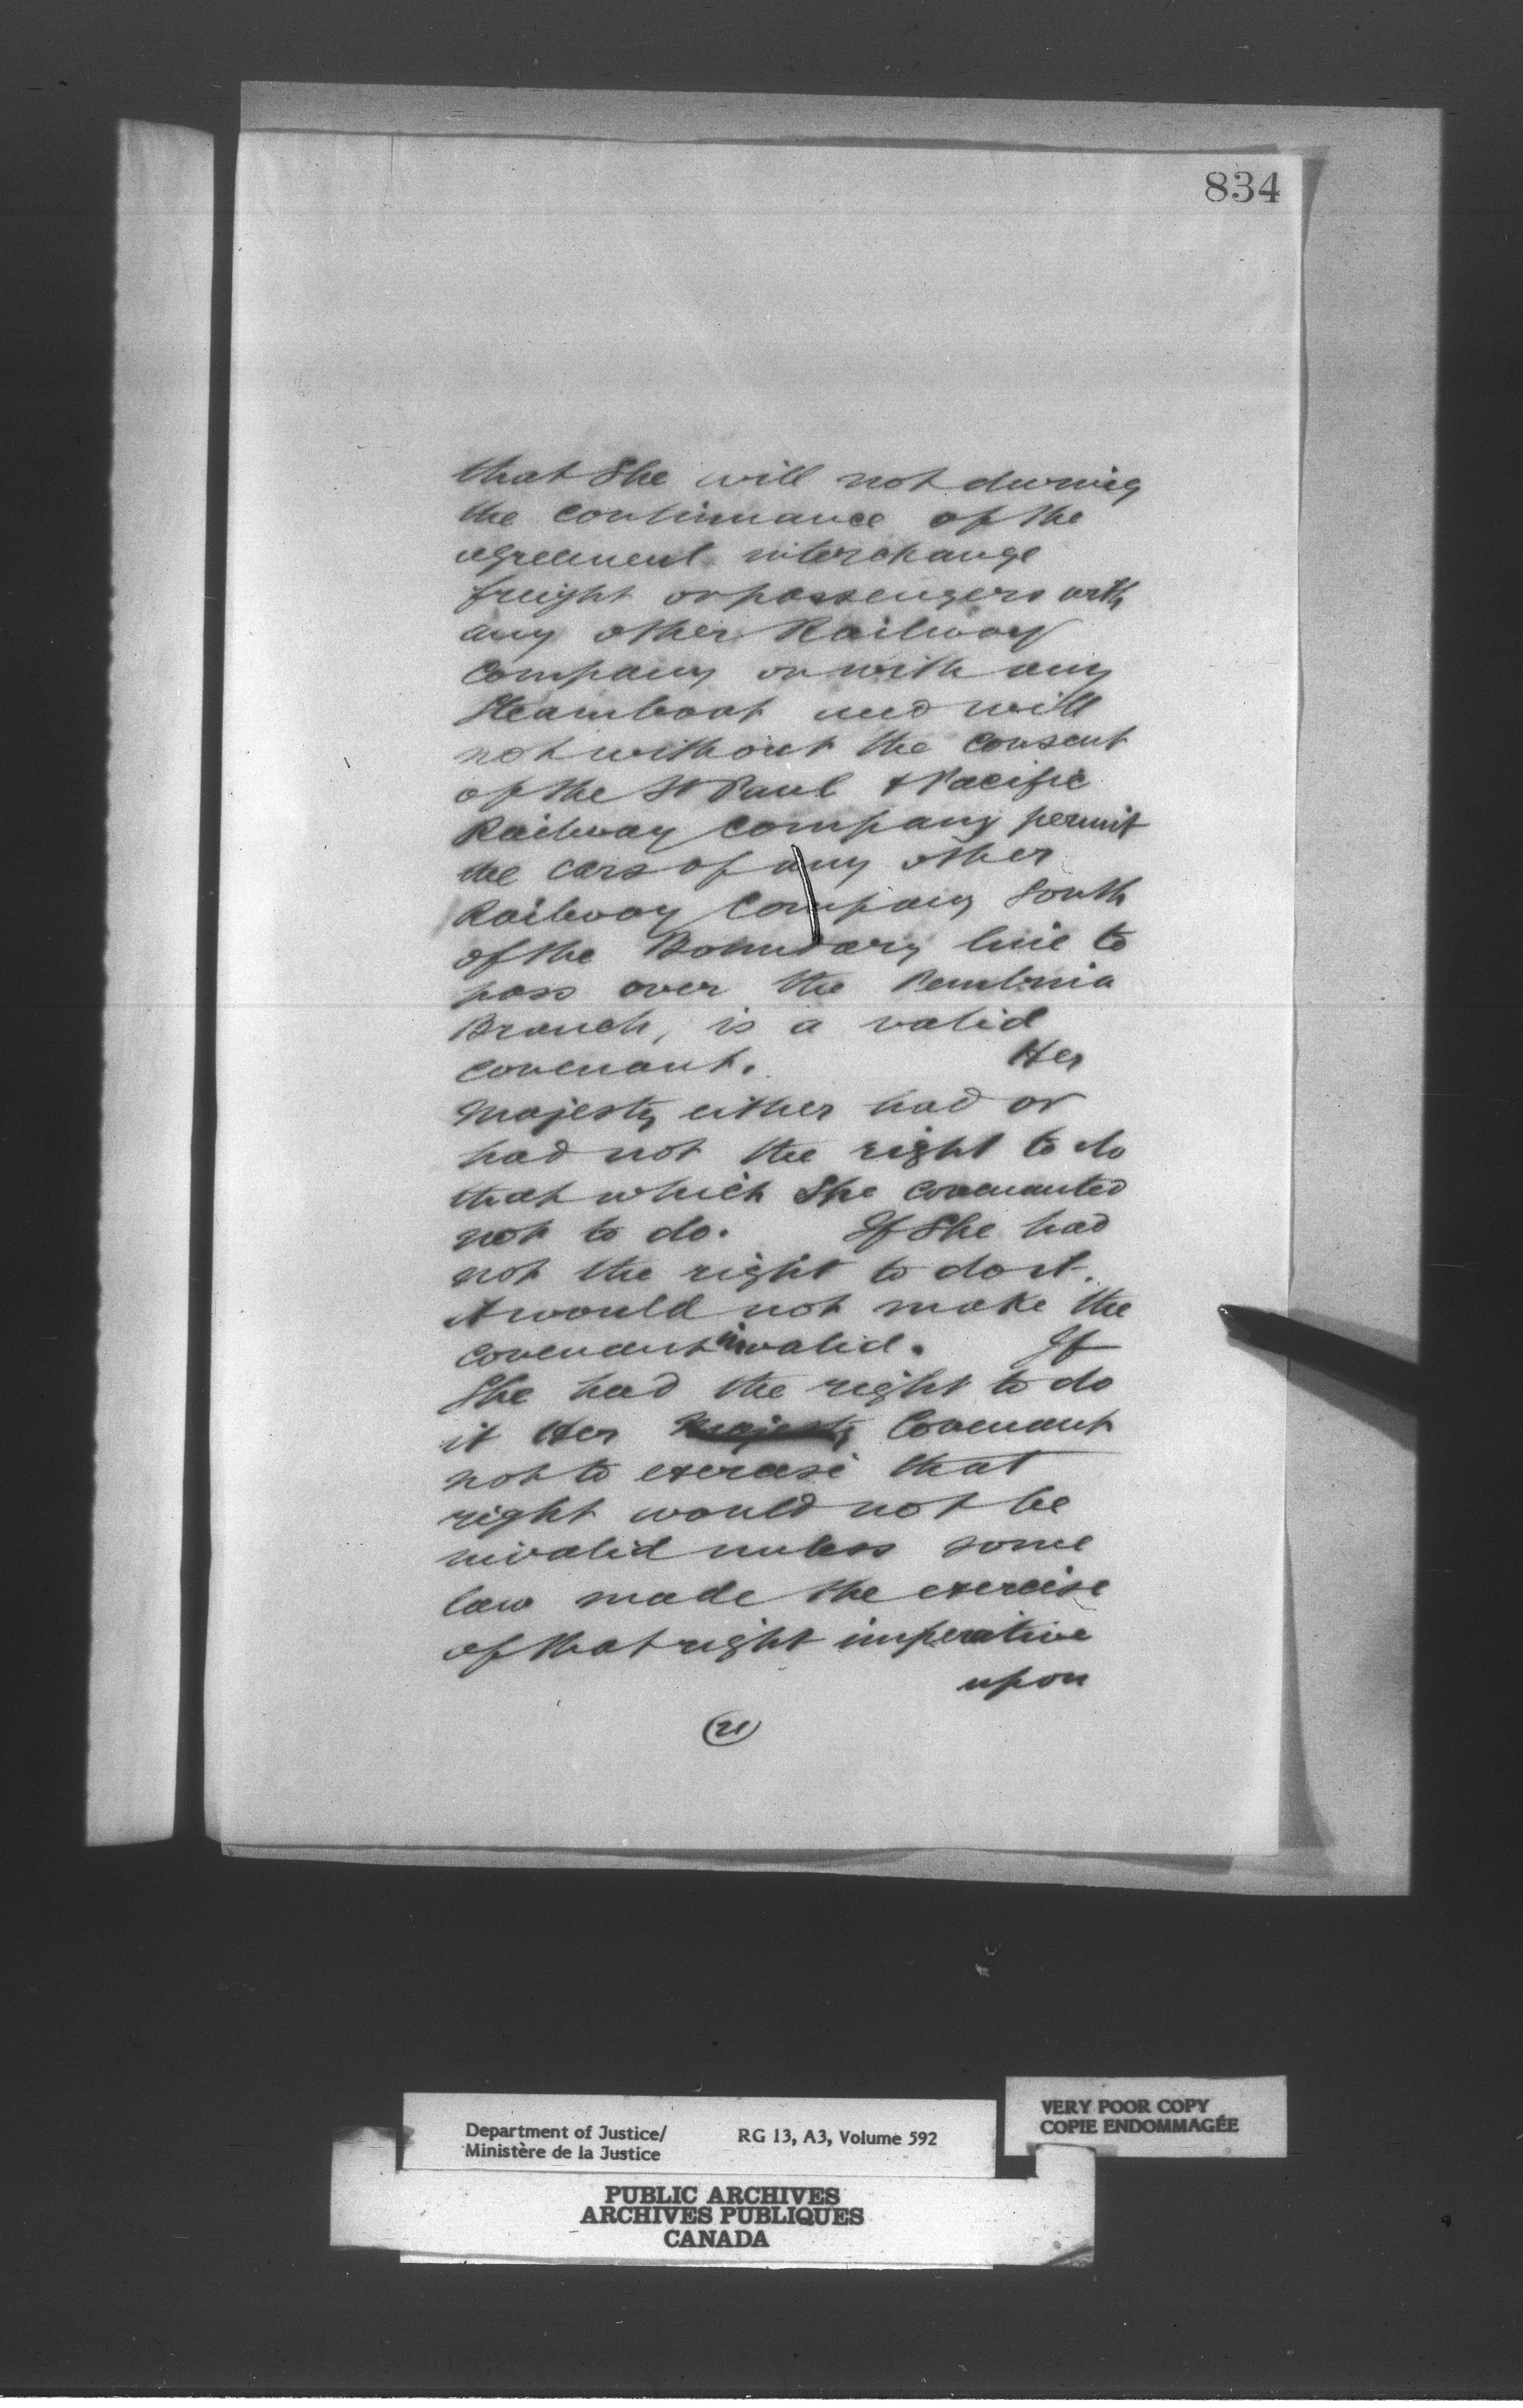 834
that She will not during
the continuance of the
agreement interchange
freight or passengers with
any other Railway
Company or with any
Steamboat and will
not without the consent
of the St Paul & Pacific
Railway Company permit
the cars of any other
Railway Company South
of the Boundary line to
pass over the Pembina
Branch, is a valid
covenant. Her
Majesty either had or
had not the right to do
that which She covenanted
not to do. If She had
not the right to do it.
it would not make the
covenant invalid. If
She had the right to do
it Her Majesty Covenant
not to exercise that
right would not be
invalid unless some
law made the exercise
of that right imperative
upon
(21)
Department of Justice/
Ministère de la Justice
RG 13, A3, Volume 592
VERY POOR COPY
COPIE ENDOMMAGÉE
PUBLIC ARCHIVES
ARCHIVES PUBLIQUES
CANADA